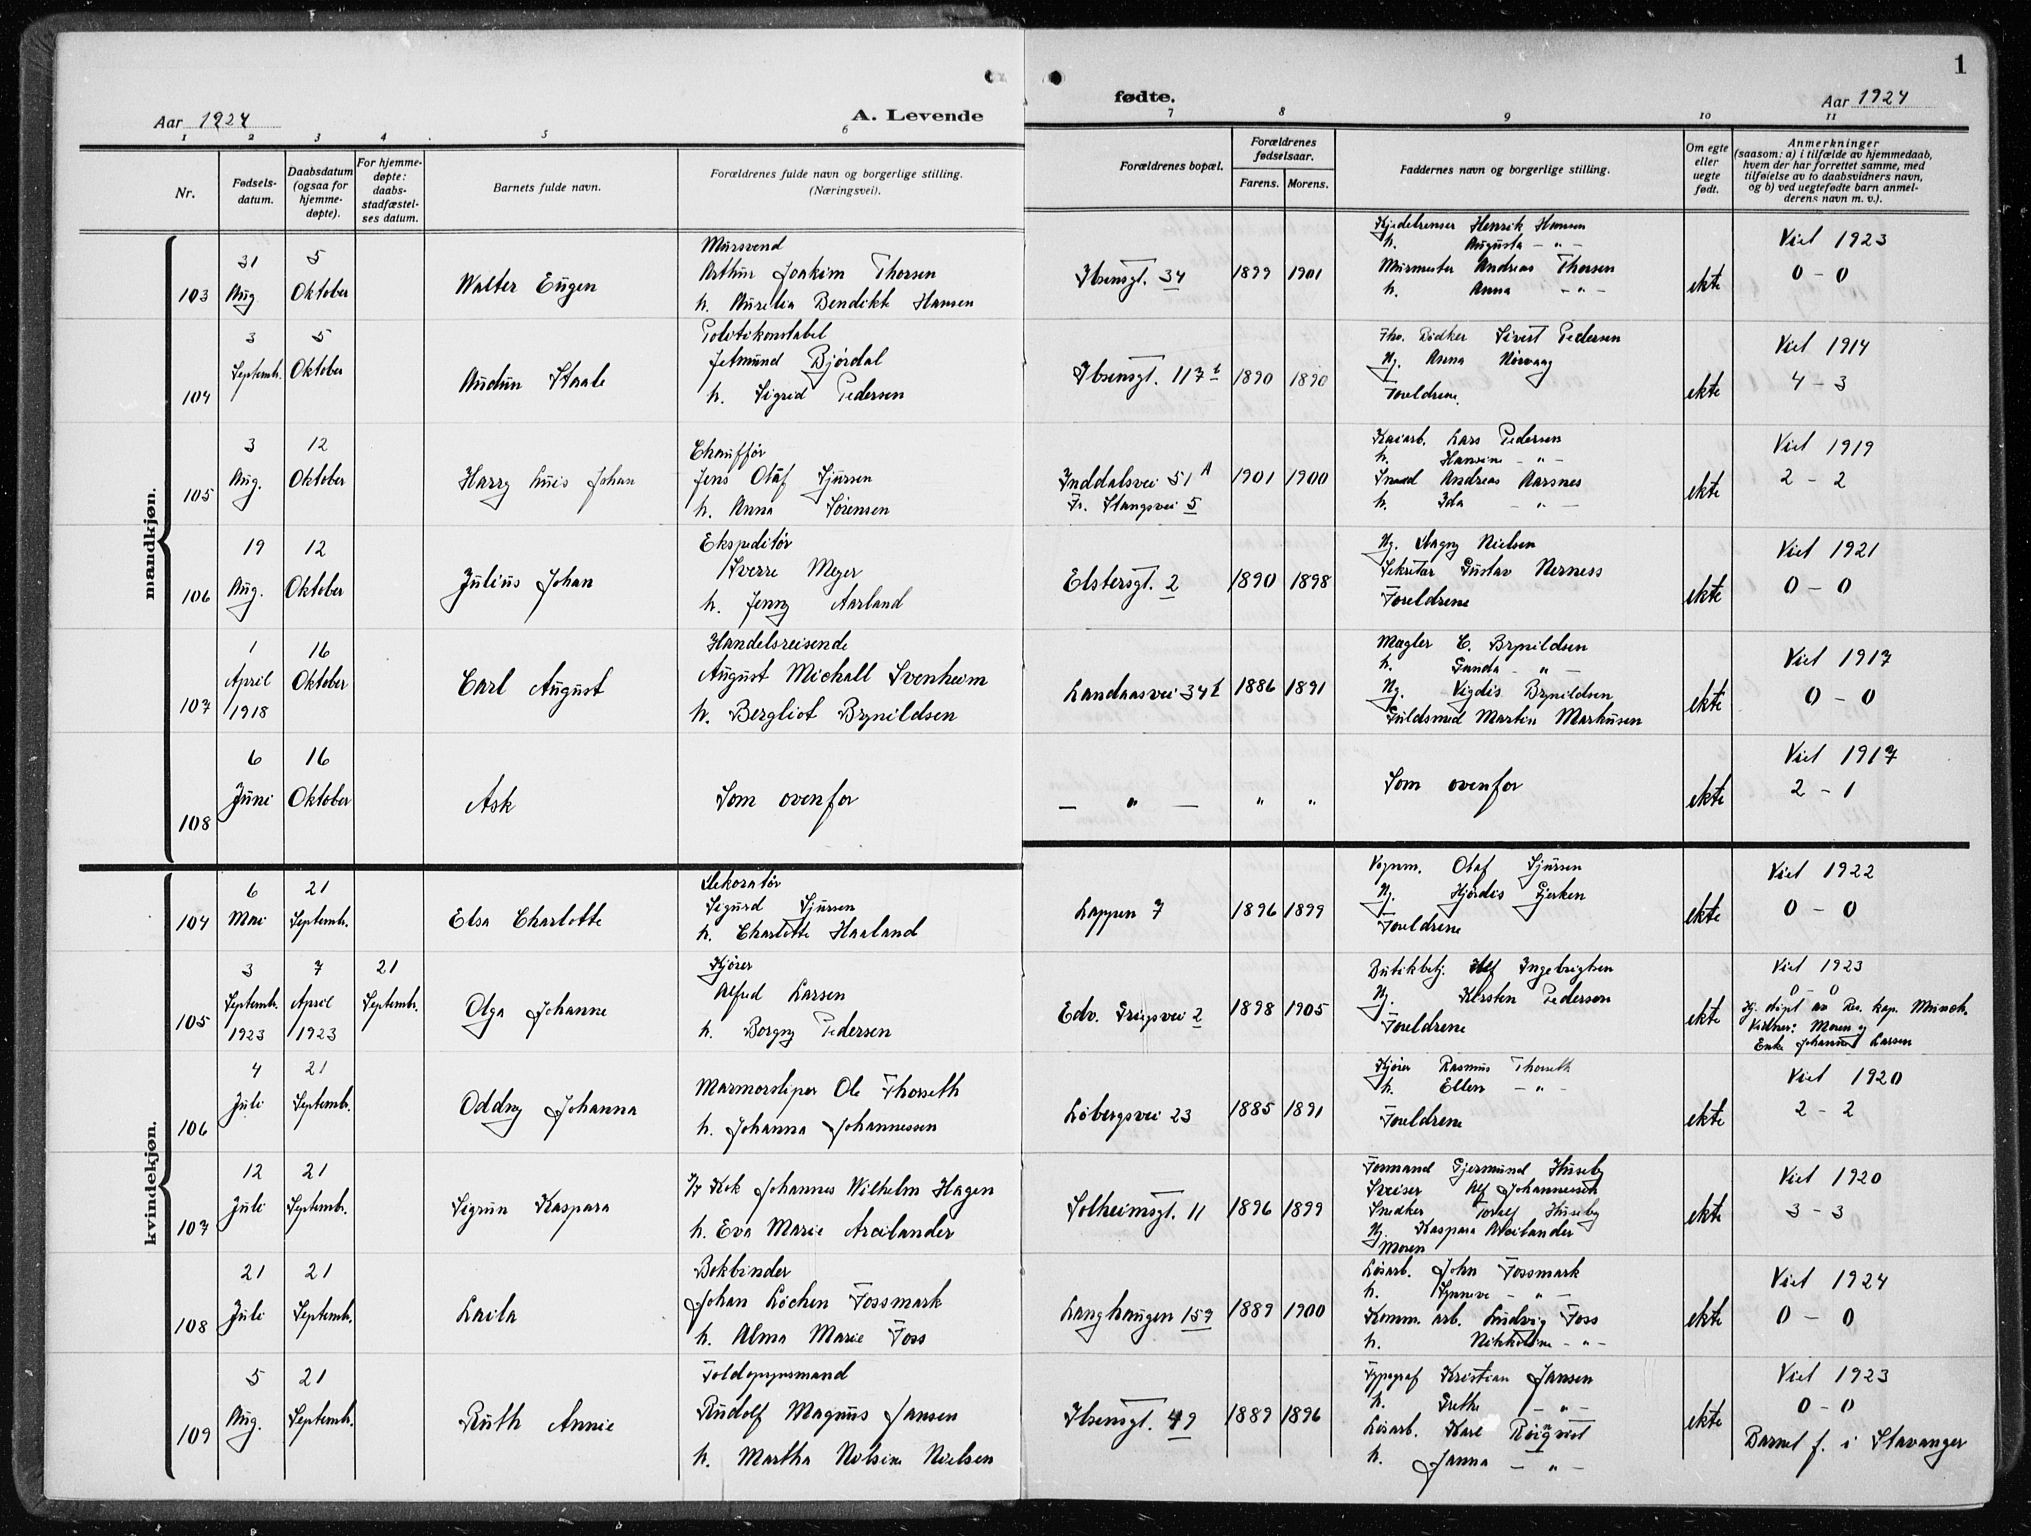 1
Aar 1924
A. Levende
fødte.
Aar 1924
1 2 3 4 5 6 7 8 9 10 11
Nr.
Fødsels-
datum.
Daabsdatum
(ogsaa for
hjemme-
døpte).
For hjemme-
døpte:
daabs-
stadfæstel-
ses datum.
Barnets fulde navn.
Forældrenes fulde navn og borgerlige stilling.
(Næringsvei).
Forældrenes bopæl.
Forældrenes
fødselsaar.
Farens. Morens.
Faddernes navn og borgerlige stilling.
Om egte
eller
uegte
født.
Anmerkninger
(saasom: a) i tilfælde av hjemmedaab,
hvem der har forrettet samme, med
tilføielse av to daabsvidners navn,
og b) ved uegtefødte barn anmel-
derens navn m. v.).
mandkjøn.
103
31
Aug
5
Oktober
Walter Eugen
Mursvend
Arthur Joakim Thorsen
h. Aurelia Bendikt Hansen
Ibsensgt. 34
1899 1901
Kjedelrenser Henrik Hansen
h. Augusta - " -
Murmester Andreas Thorsen
h. Anna - " -
ekte
Viet 1923
0 - 0
104
3
Septembr.
5
Oktober
Audun Staale
Politikonstabel
Jetmund Bjørdal
h. Sigrid Pedersen
Ibsensgt. 117 b
1890 1890
Fhv. Bødker Sivert Pedersen
Ng. Anna Norvaag
Foreldrene
ekte
Viet 1914
4 - 3
105
3
Aug.
12
Oktober
Harry Luis Johan
Chauffør
Jens Olaf Sjursen
h. Anna Sørensen
Inddalsvei 51 A
Fr. Stangsvei 5
1901 1900
Kaiarb. Lars Pedersen
h. Hansine - " -
Smed Andreas Aarsnes
h. Ida - " -
ekte
Viet 1919
2 - 2
106
19
Aug.
12
Oktober
Julius Johan
Ekspeditør
Sverre Meyer
h. Jenny Aarland
Elstersgt. 2
1890 1898
Ng. Dagny Nielsen
Sekretær Gustav Nerness
Foreldrene
ekte
Viet 1921
0 - 0
107
1
April
1918
16
Oktober
Carl August
Handelsreisende
August Michall Svenheim
h. Bergliot Brynildsen
Landaasvei 34 b
1886 1891
Mægler C. Brynildsen
h. Gunda - " -
Ng. Vigdis Brynildsen
Guldsmed Martin Markusen
ekte
Viet 1917
0 - 0
108
6
Juni
16
Oktober
Ask
Som ovenfor
- " -
" "
Som ovenfor
ekte
Viet 1917
2 - 1
kvindekjøn.
104
6
Mai
21
Septembr.
Elsa Charlotte
Dekoratør
Sigurd Sjursen
h. Charlotte Haaland
Lappen 7
1896 1899
Vognm. Olaf Sjursen
Ng. Hjørdis Gjerken
Foreldrene
ekte
Viet 1922
0 - 0
105
3
Septembr.
1923
7
April
1923
21
Septembr.
Olga Johanne
Kjører
Alfred Larsen
h. Borgny Pedersen
Edv. Griegsvei 2
1898 1905
Butikbetj. Alf Ingebrigtsen
Ng. Kirsten Pedersen
Foreldrene
ekte
Viet 1923
0 - 0
Hj. døpt av Res. kap. Munch.
Vidner: Moren og
Enke Johanne Larsen
106
4
Juli
21
Septembr.
Oddny Johanna
Marmorsliper Ole Thorseth
h. Johanna Johannessen
Løbergsvei 23
1885 1891
Kjører Rasmus Thorseth
h. Ellen - " -
Foreldrene
ekte
Viet 1920
2 - 2
107
12
Juli
21
Septembr.
Sigrun Kaspara
F/ Kok Johannes Wilhelm Hagen
h. Eva Marie
Solheimsgt. 11
1896 1899
Formand Gjermund Huseby
Alf Johannessen
Snedker Toralf Huseby
Ng. Kaspara
Moren
ekte
Viet 1920
3 - 3
108
21
Juli
21
Septembr.
Laila
Bokbinder
Johan Lochen Fossmark
h. Alma Marie Foss
Langhaugen 157
1889 1900
Løsarb. John Fossmark
h. Synneve - " -
Komm. arb. Ludvig Foss
h. Nikkoline - " -
ekte
Viet 1924
0 - 0
109
5
Aug.
21
Septembr.
Ruth Annie
Toldopsynsmand
Rudolf Magnus Jansen
h. Martha Nilsine Nielsen
Ibsensgt. 49
1889 1896
Typograf Kristian Jansen
h. Grethe - " -
Løsarb. Karl
h. Janna - " -
ekte
Viet 1923
0 - 0
Barnet f. i Stavanger